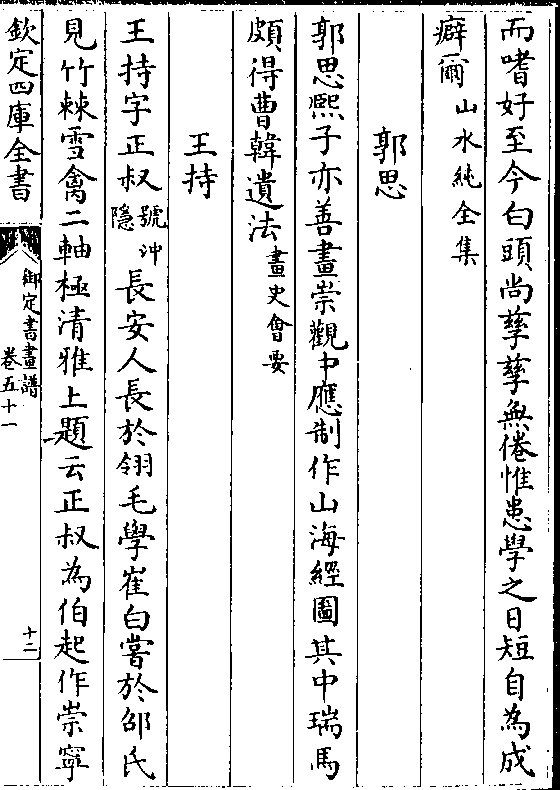 而嗜好至今白頭尚孳孳無倦惟患學之日短自為成
癖爾山水純全集
郭思
郭思熙子亦善畫崇觀中應制作山海經圖其中瑞馬
頗得曹韓遺法畫史會要
王持
王持字正叔號沖隱長安人長於翎毛學崔白嘗於邵氏
見竹棘雪禽二軸極清雅上題云正叔為伯起作崇寧
欽定四庫全書
御定書畫譜
卷五十一
十二